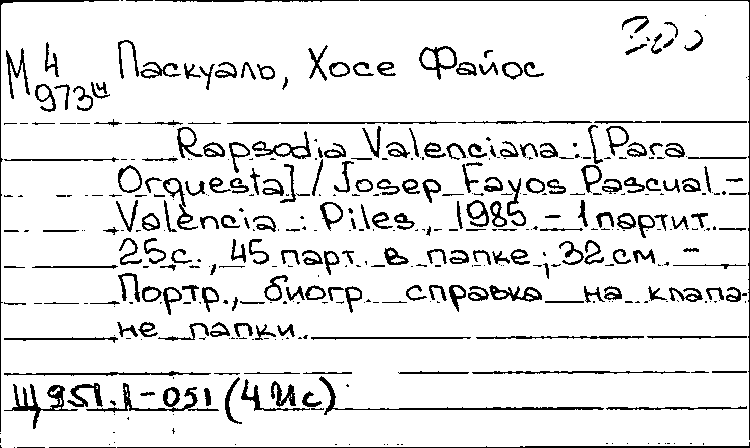 300
М 4 Паскуаль, Хосе Файос
973ш
Rapsodia Valenciana : [Para
Orquesta] / Josep Fayos Pascual. –
Valencia : Piles, 1985. – 1 партит.
25с., 45 парт. в папке ; 32 см. –
Портр., биогр. справка на клапа-
не папки.
Щ951.1-051 (4Ис)